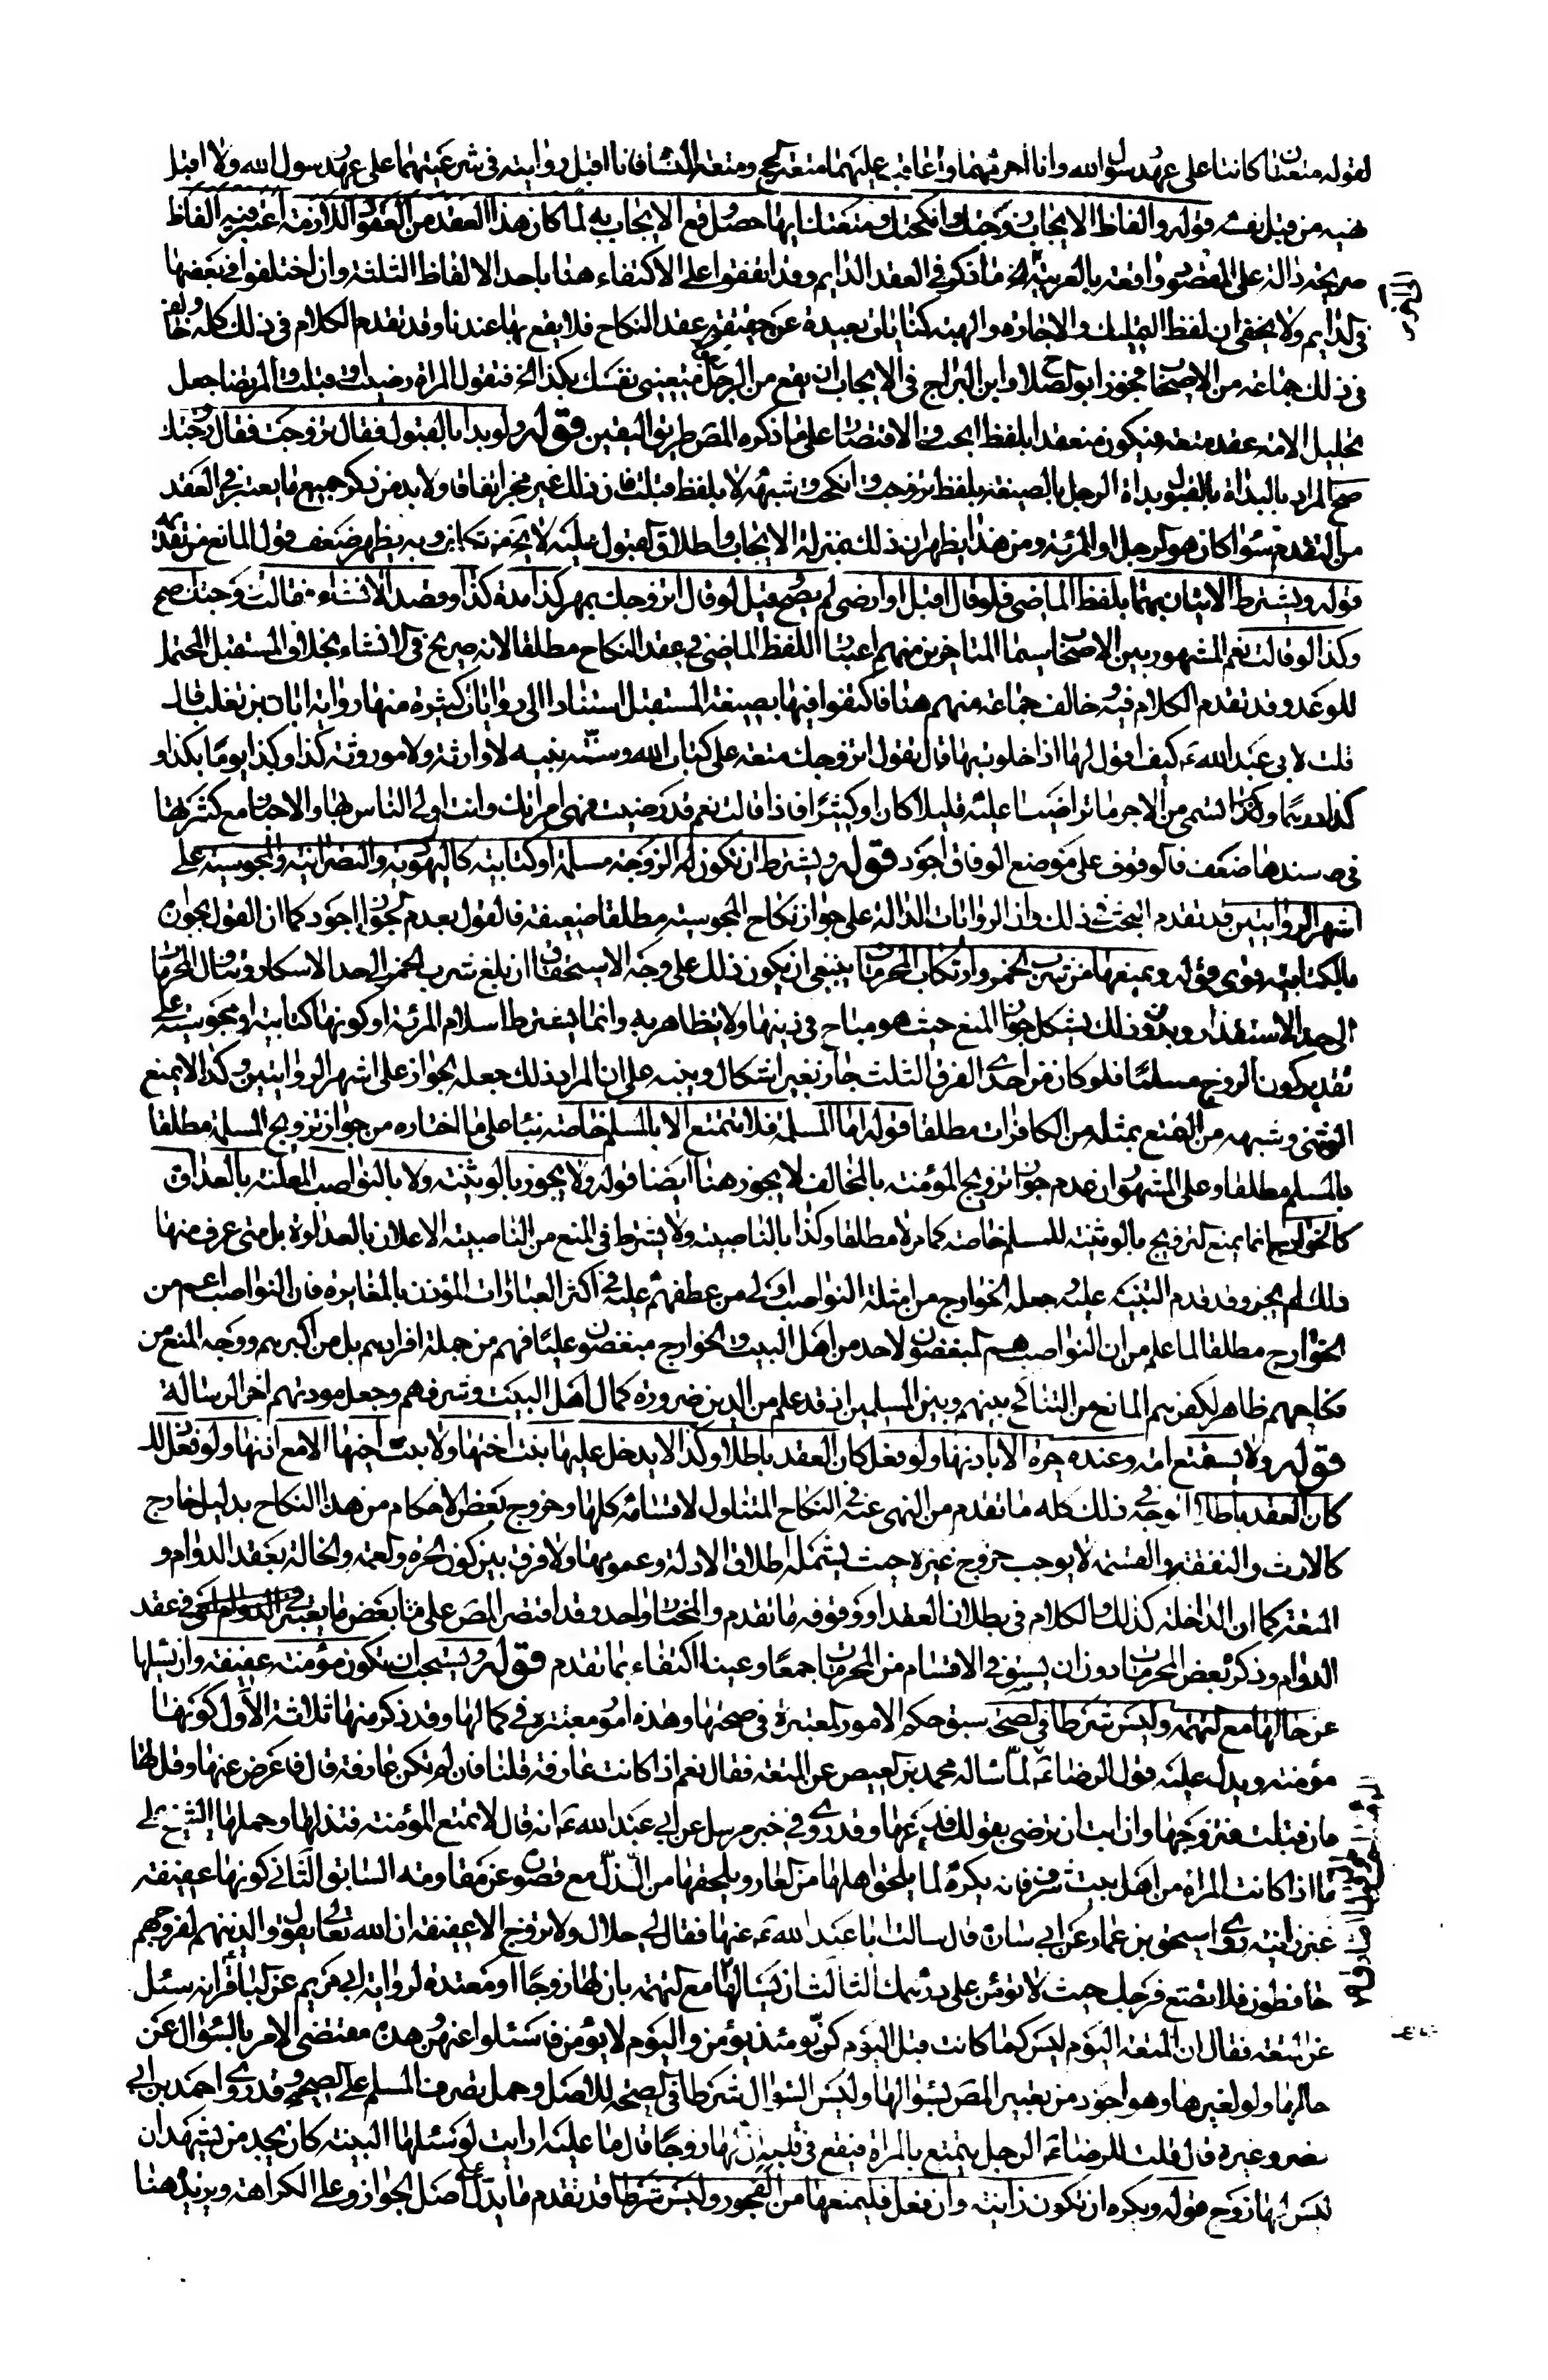 لقوله متعتان كانتا على عهد رسول الله وانا احرمهما واعاقب عليهما متعة الحج ومتعة النساء فانا اقبل روايته في شرعيتهما على عهد رسول الله ولا اقبل
نهيه من قبل نفسه قوله والفاظ الايجاب زوجتك وانكحتك ومتعتك ايها حصل وقع الايجاب به لما كان هذا العقد من العقود اللازمة اعتبر فيه الفاظ
صريحة دالة على المقصود واقعة بالعربية الخ ما ذكر في العقد الدايم وقد اتفقوا على الاكتفاء هنا باحد الالفاظ الثلثة وان اختلفوا في بعضها
في الدايم ولا يخفى ان لفظ التمليك والاجارة والهبة كنايات بعيدة عن حقيقة عقد النكاح فلا يقع بها عندنا وقد تقدم الكلام في ذلك كله وخالف
في ذلك جماعة من الاصحاب فجوز ابو الصلاح وابن البراج في الايجاب ان يقع من الرجل متعيني نفسك بكذا الخ فتقول المراة رضيت او قبلت والمرتضى جعل
تحليل الامة عقد متعة فيكون منعقدا بلفظ ابحت والاقتصار على ما ذكره المص طريق اليقين قوله ولو بدا بالقبول فقال تزوجت فقال زوجتك
صح المراد بالبداة بالقبول بداة الرجل بالصيغة بلفظ تزوجت وانكحت وشبهه لا بلفظ قبلت فان ذلك غير مجز اتفاقا ولا بد من ذكر جميع ما يعتبر في العقد
من المتقدم سواء كان هو الرجل او المرئة ومن هذا يظهر ان ذلك بمنزلة الايجاب واطلاق القبول عليه لا يخفى وبه يظهر ضعف قول المانع من تقديمه
قوله ويشترط الاتيان بهما بلفظ الماضي فلو قال اقبل او ارضى لم يصح قيل لو قال اتزوجك بمهر كذا مدة كذا وقصد الانشاء فقالت زوجتك صح
وكذا لو قالت نعم المشهور بين الاصحاب سيما المتاخرين منهم اعتبار اللفظ الماضي في عقد النكاح مطلقا لانه صريح في الانشاء بخلاف المستقبل المحتمل
للوعد وقد تقدم الكلام فيه وخالف جماعة منهم هنا فاكتفوا فيها بصيغة المستقبل استنادا الى روايات كثيرة منها رواية ابان بن تغلب قال
قلت لابي عبد الله ع كيف اقول لها اذا خلوت بها قال تقول اتزوجك متعة على كتاب الله وسنة نبيه لا وارثة ولا موروثة كذا وكذا يوما بكذا و
كذا درهما وكذا تسمي من الاجر ما تراضيتما عليه قليلا كان او كثيرا فاذا قالت نعم فقد رضيت فهي امراتك وانت اولى الناس بها والاخبار مع كثرتها
في سندها ضعف فالوقوف على موضع الوفاق اجود قوله ويشترط ان تكون الزوجة مسلمة او كتابية كاليهودية والنصرانية والمجوسية على
اشهر الروايتين قد تقدم البحث في ذلك وان الروايات الدالة على جواز نكاح المجوسية مطلقا ضعيفة فالقول بعدم الجواز اجود كما ان القول بجوازه
بالكتابية قوي قوله ويمنعها من شرب الخمر وارتكاب المحرمات ينبغي ان يكون ذلك على وجه الاستحقاق ان بلغ شرب الخمر الى حد الاسكار وتناول المحرمات
الى حد الاستقذار وبدون ذلك يشكل جواز المنع حيث هو مباح في دينها ولا تتظاهر به وانما يشترط اسلام المرئة او كونها كتابية او مجوسية على
تقدير كون الزوج مسلما فلو كان من احدى الفرق الثلث جاز بغير اشكال وينبه على ان المراد ذلك جعله الجواز على اشهر الروايتين وكذا لا يمنع
الوثني وشبهه من التمتع بمثله من الكافرات مطلقا قوله اما المسلمة فلا تتمتع الا بالمسلم خاصة بناء على ما اختاره من جواز تزويج المسلمة مطلقا
بالمسلم مطلقا وعلى المشهور ان عدم جواز تزويج المؤمنة بالمخالف لا يجوز هنا ايضا قوله ولا يجوز بالوثنية ولا بالنواصب المعلنة بالعداوة
كالخوارج انما يمنع التزويج بالوثنية للمسلم خاصة كما مر لا مطلقا وكذا بالناصبية ولا يشترط في المنع من الناصبية الاعلان بالعداوة بل متى عرف منها
ذلك لم يجز وقد تقدم التنبيه عليه وجعله الخوارج من امثلة النواصب اولى من عطفهم عليه في اكثر العبارات المؤذن بالمغايرة فان النواصب اعم من
الخوارج مطلقا لما علم من ان النواصب هم المبغضون لاحد من اهل البيت والخوارج مبغضون عليا فهم من جملة افرادهم بل من اكبرهم ووجه المنع من
نكاحهم ظاهر لكفرهم المانع من التناكح بينهم وبين المسلمين اذ قد علم من الدين ضرورة كمال اهل البيت وشرفهم وجعل مودتهم اجر الرسالة
قوله ولا يستمتع امة وعنده حرة الا باذنها ولو فعل كان العقد باطلا وكذا لا يدخل عليها بنت اختها ولا بنت اخيها الا مع اذنها ولو فعل ذلك
كان العقد باطلا الوجه في ذلك كله ما تقدم من النهي عنه في النكاح المتناول لاقسامه كلها وخروج بعض الاحكام من هذا النكاح بدليل خارج
كالارث والنفقة والقسمة لا يوجب خروج غيره حيث يشمله اطلاق الادلة وعمومها ولا فرق بين كون الحرة والعمة والخالة بعقد الدوام و
المتعة كما ان الداخلة كذلك والكلام في بطلان العقد او وقوفه ما تقدم والمختار واحد وقد اقتصر المص على بعض ما يعتبر في عقد
الدوام وذكر بعض المحرمات دون ان يستوفي الاقسام من المحرمات جمعا وعينا اكتفاء بما تقدم قوله ويستحب ان تكون مؤمنة عفيفة وان يسئلها
عن حالها مع التهمة وليس شرطا في الصحة سبق حكم الامور المعتبرة في صحتها وهذه امور معتبرة في كمالها وقد ذكر منها ثلاثة الاول كونها
مؤمنة ويدل عليه قول الرضا ع لما ساله محمد بن العيص عن المتعة فقال نعم اذا كانت عارفة قلنا فان لم تكن عارفة قال فاعرض عنها وقل لها
فان قبلت فتزوجها وان ابت ان ترضى بقولك فدعها وقد روي في خبر مرسل عن ابي عبد الله ع انه قال لا تمتع المؤمنة فتذلها وحملها الشيخ على
ما اذا كانت المراة من اهل بيت شرف فانه يكره لما يلحق اهلها من العار ويلحقها من الذل مع قصوره عن مقاومة السابق الثاني كونها عفيفة
غير زانية روى اسحق بن عمار عن ابي سارة قال سالت ابا عبد الله ع عنها فقال لي حلال ولا تزوج الا عفيفة ان الله تعالى يقول والذين هم لفروجهم
حافظون فلا تضع فرجك حيث لا تؤمن على درهمك الثالث ان يسالها مع التهمة بان لها زوجا او معتدة لرواية ابي مريم عن الباقر انه سئل
عن المتعة فقال ان المتعة اليوم ليس كما كانت قبل اليوم كن يومئذ يؤمن واليوم لا يؤمن فاسئلوا عنهن وهذه مقتضى الامر بالسؤال عن
حالها ولو لغيرها وهو اجود من تعبير المص بسؤالها وليس السؤال شرطا في الصحة للاصل وحمل تصرف المسلم على الصحة وقد روى احمد بن ابي
نصر وغيره قال قلت للرضا ع الرجل يتمتع بالمراة فيقع في قلبه ان لها زوجا قال ما عليه ارايت لو سئلها البينة كان يجد من يشهد ان
ليس لها زوج قوله ويكره ان تكون زانية وان فعل فليمنعها من الفجور وليس شرطا قد تقدم ما يدل على اصل الجواز وعلى الكراهة ويزيد هنا